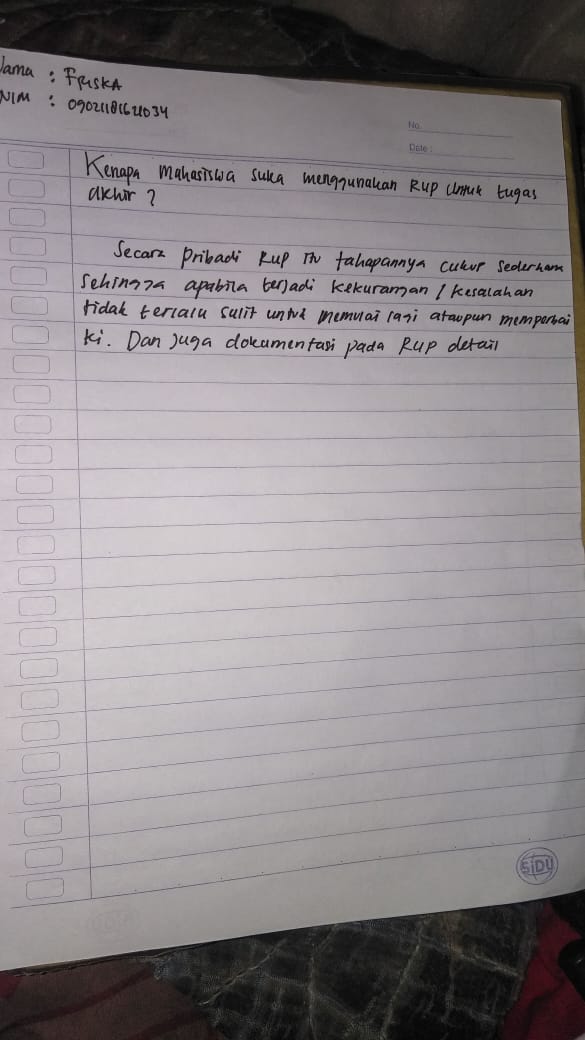 Nama : FRISKA
NIM : 09021181621034
No.
Date :
Kenapa Mahasiswa suka menggunakan RUP untuk tugas
akhir ?
Secara pribadi RUP itu tahapannya cukup sederhana
sehingga apabila terjadi kekurangan / kesalahan
tidak terlalu sulit untuk memulai lagi ataupun memperbai
ki. Dan juga dokumentasi pada RUP detail
SiDU